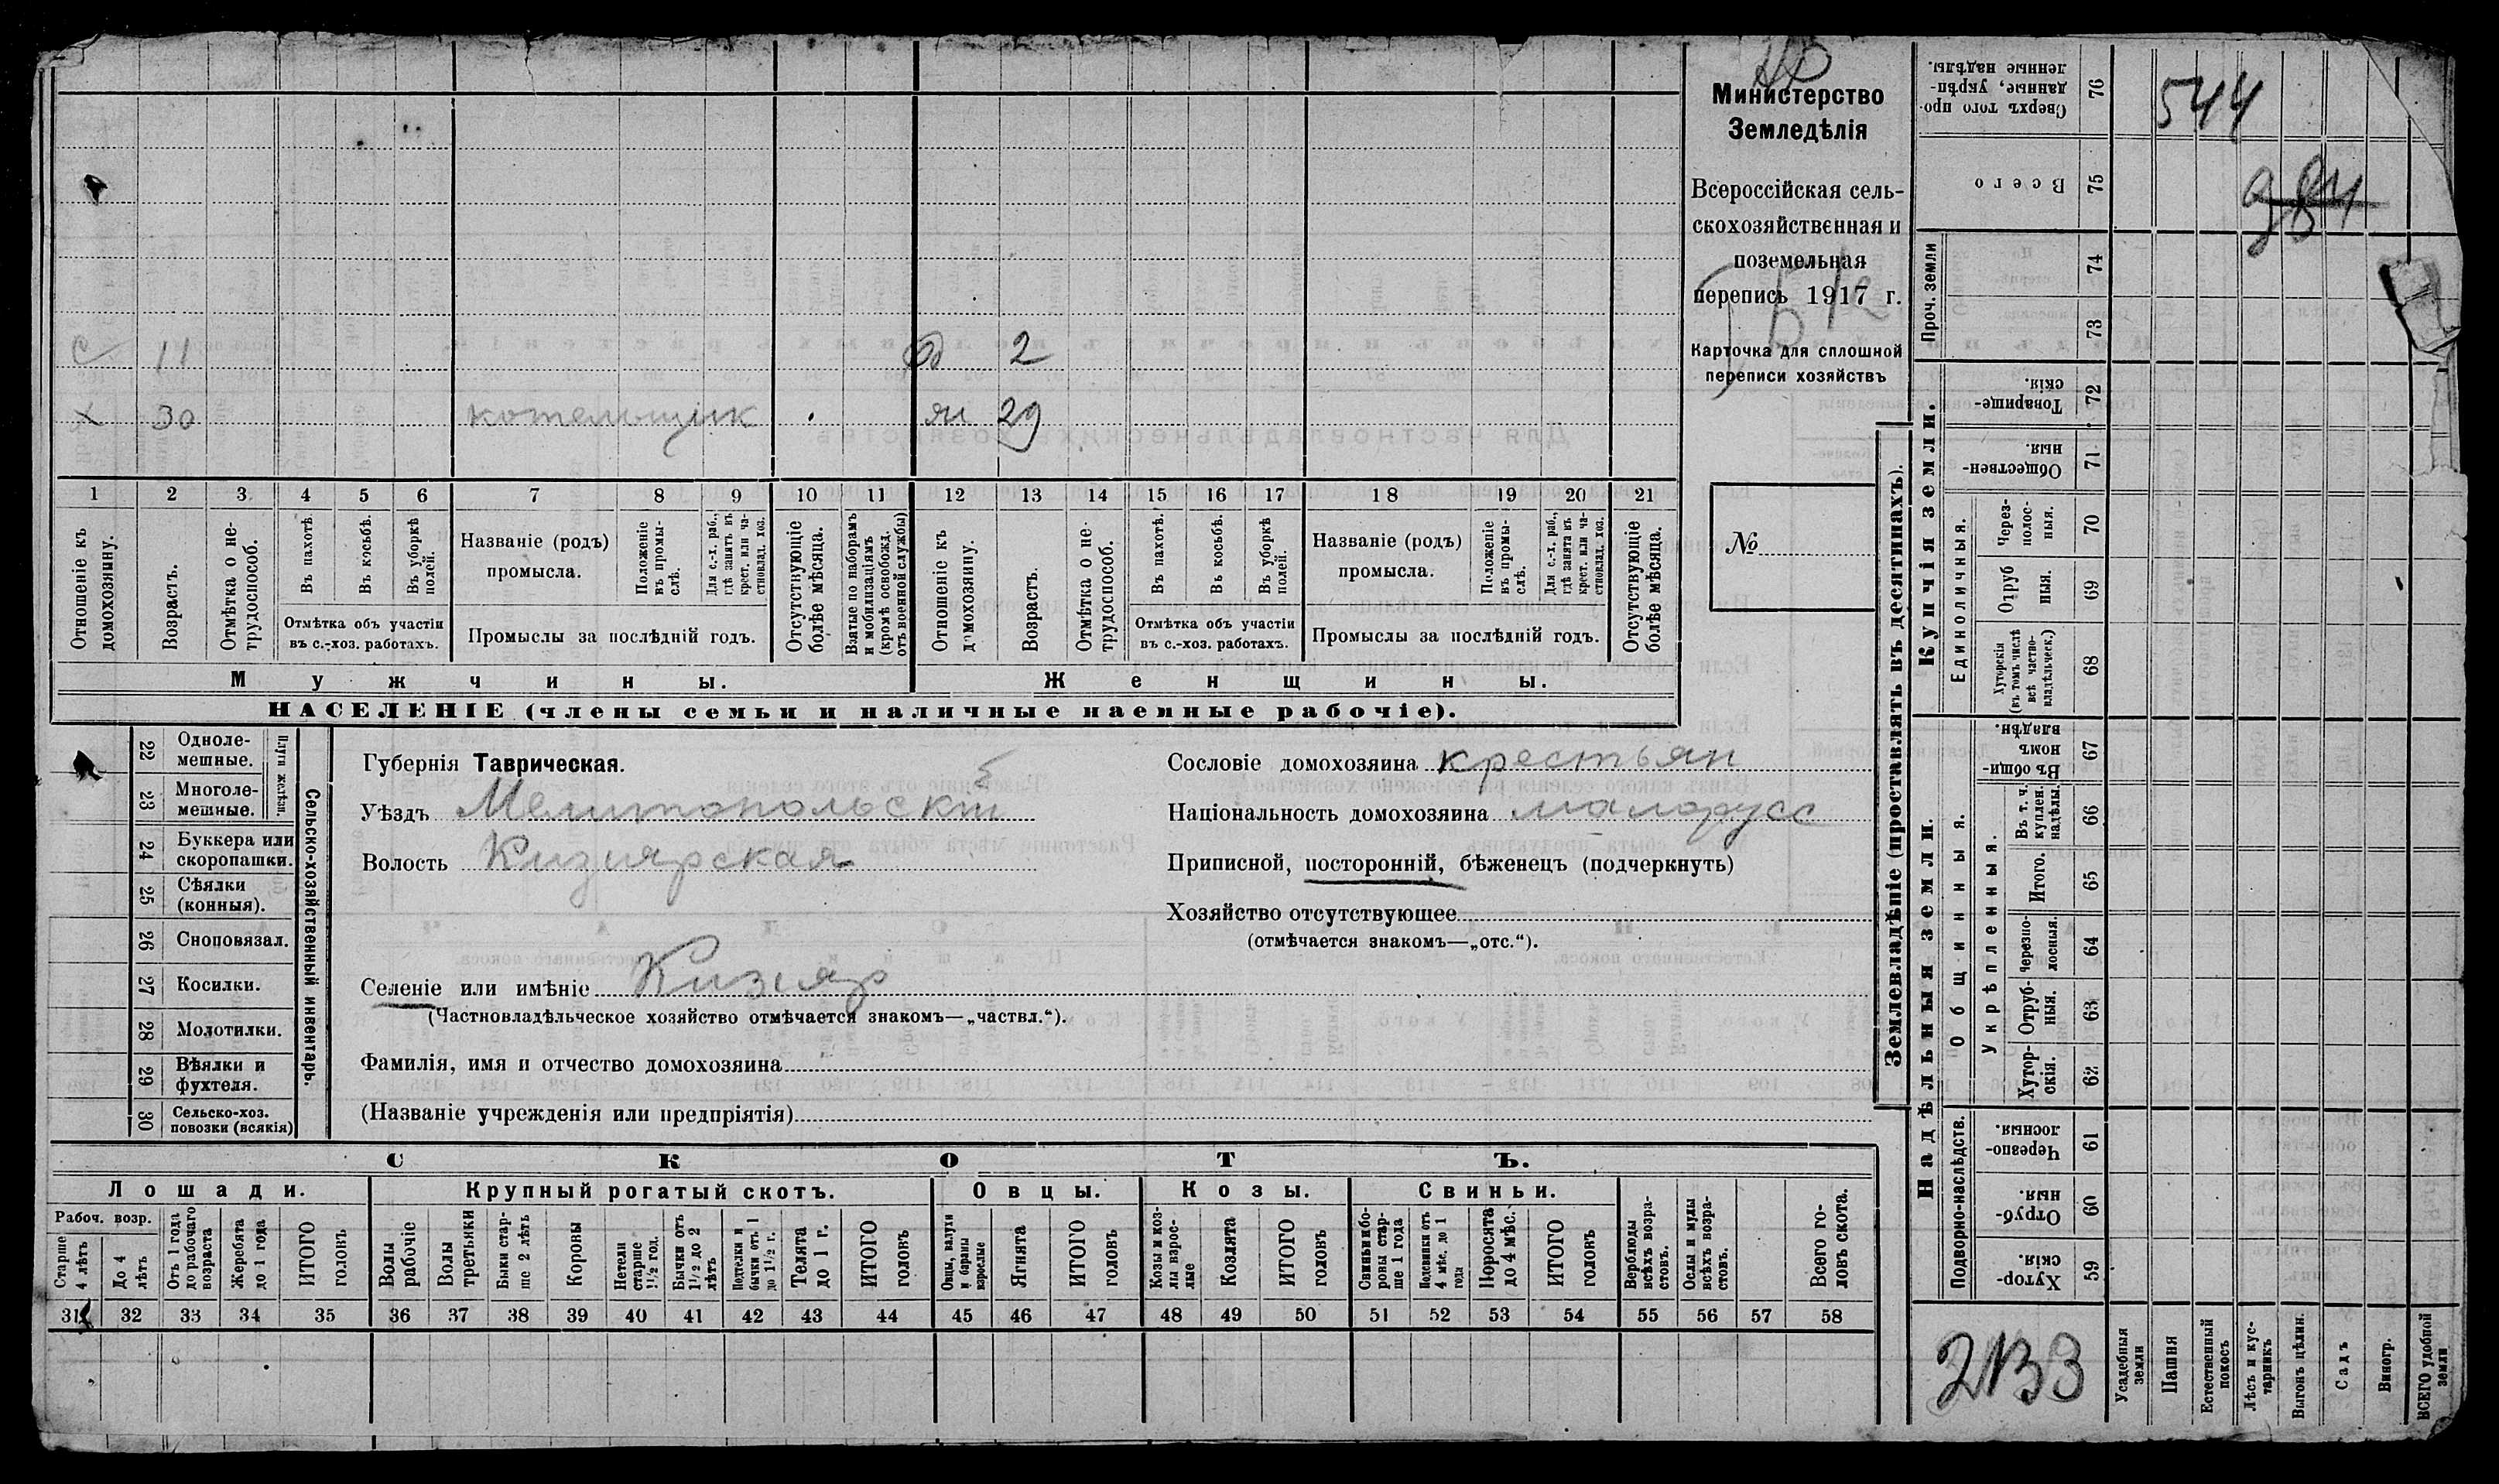 Министерство
Земледѣлія
Всероссійская сель-
скохозяйственная и
поземельная
перепись 1917 г.
Карточка для сплошной
переписи хозяйствъ
№
11 2
30 котельщик 29
1 2 3 4 5 6 7 8 9 10 11 12 13 14 15 16 17 18 19 20 21
Отношеніе къ домохозяину.
Возрастъ.
Отмѣтка о не-трудоспособ.
Въ пахотѣ.
Въ косьбѣ.
Въ уборкѣ полей.
Отмѣтка объ участіи
въ с.-хоз. работахъ.
Названіе (родъ)
промысла.
Положеніе въ промы-слѣ.
Для с.-х. раб., гдѣ занятъ въ крест. или ча-стновлад. хоз.
Промыслы за послѣдній годъ.
Отсутствующіе болѣе мѣсяца.
Взятые по наборамъ и мобилизаціямъ (кромѣ освобожд. отъ военной службы)
Отношеніе къ домохозяину.
Возрастъ.
Отмѣтка о не-трудоспособ.
Въ пахотѣ.
Въ косьбѣ.
Въ уборкѣ полей.
Отмѣтка объ участіи
въ с.-хоз. работахъ.
Названіе (родъ)
промысла.
Положеніе въ промы-слѣ.
Для с.-х. раб., гдѣ занята въ крест. или ча-стновлад. хоз.
Промыслы за послѣдній годъ.
Отсутствующіе болѣе мѣсяца.
Мужчины.
Женщины.
НАСЕЛЕНІЕ (члены семьи и наличные наемные рабочіе).
22 Одноле-мешные.
23 Многоле-мешные.
Плуги желѣзн.
24 Буккера или скоропашки.
25 Сѣялки (конныя).
26 Сноповязал.
27 Косилки.
28 Молотилки.
29 Вѣялки и фухтеля.
30 Сельско-хоз. повозки (всякія)
Сельско-хозяйственный инвентарь.
Губернія Таврическая.
Уѣздъ Мелитопольскій
Волость Кизиярская
Селеніе или имѣніе Кизияр
(Частновладѣльческое хозяйство отмѣчается знакомъ—„частвл.“).
Фамилія, имя и отчество домохозяина
(Названіе учрежденія или предпріятія)
Сословіе домохозяина крестьян
Національность домохозяина малорусс
Приписной, посторонній, бѣженецъ (подчеркнуть)
Хозяйство отсутствующее
(отмѣчается знакомъ—„отс.“).
СКОТЪ.
Лошади. Крупный рогатый скотъ. Овцы. Козы. Свиньи.
Рабоч. возр.
Старше 4 лѣтъ
До 4 лѣтъ
Отъ 1 года до рабочаго возраста
Жеребята до 1 года
ИТОГО головъ
Волы рабочіе
Волы третьяки
Быки стар-ше 2 лѣтъ
Коровы
Нетели старше 1½ год.
Бычки отъ 1½ до 2 лѣтъ
Подтелки и бычки отъ 1 до 1½ г.
Телята до 1 г.
ИТОГО головъ
Овцы, валухи и бараны взрослые
Ягнята
ИТОГО головъ
Козы и коз-лы взрос-лые
Козлята
ИТОГО головъ
Свиньи и бо-ровы стар-ше 1 года
Подсвинки отъ 4 мѣс. до 1 года
Поросята до 4 мѣс.
ИТОГО головъ
Верблюды всѣхъ возра-стовъ.
Ослы и мулы всѣхъ возра-стовъ.
Всего го-ловъ скота.
31 32 33 34 35 36 37 38 39 40 41 42 43 44 45 46 47 48 49 50 51 52 53 54 55 56 57 58
Землевладѣніе (проставлять въ десятинахъ).
Купчія земли.
Надѣльныя земли.
Сверхъ того про-данные, укрѣп-ленные надѣлы. 76
Всего 75
Проч. земли 74
73
Товарище-скія. 72
Обществен-ныя. 71
Единоличныя.
Через-полос-ныя. 70
Отруб-ныя. 69
Хуторскія (въ томъ числѣ всѣ частно-владѣльческ.) 68
Общинныя.
Въ общи-номъ владѣн. 67
Укрѣпленныя.
Въ т. ч. куплен. надѣлы. 66
Итого. 65
Черезпо-лосныя. 64
Отруб-ныя. 63
Хутор-скія. 62
Подворно-наслѣдств.
Черезпо-лосныя. 61
Отруб-ныя. 60
Хутор-скія. 59
Усадебныя земли
Пашня
Естественный покосъ
Лѣсъ и кус-тарникъ
Выгонъ цѣлин.
Садъ
Виногр.
ВСЕГО удобной земли
544
984